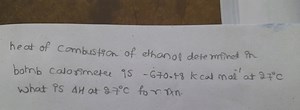 heat of combustion of ethanol determined in
bomb calorimeter is -670.48 kcal mol⁻¹ at 27°C
what is ΔH at 27°C for rxn